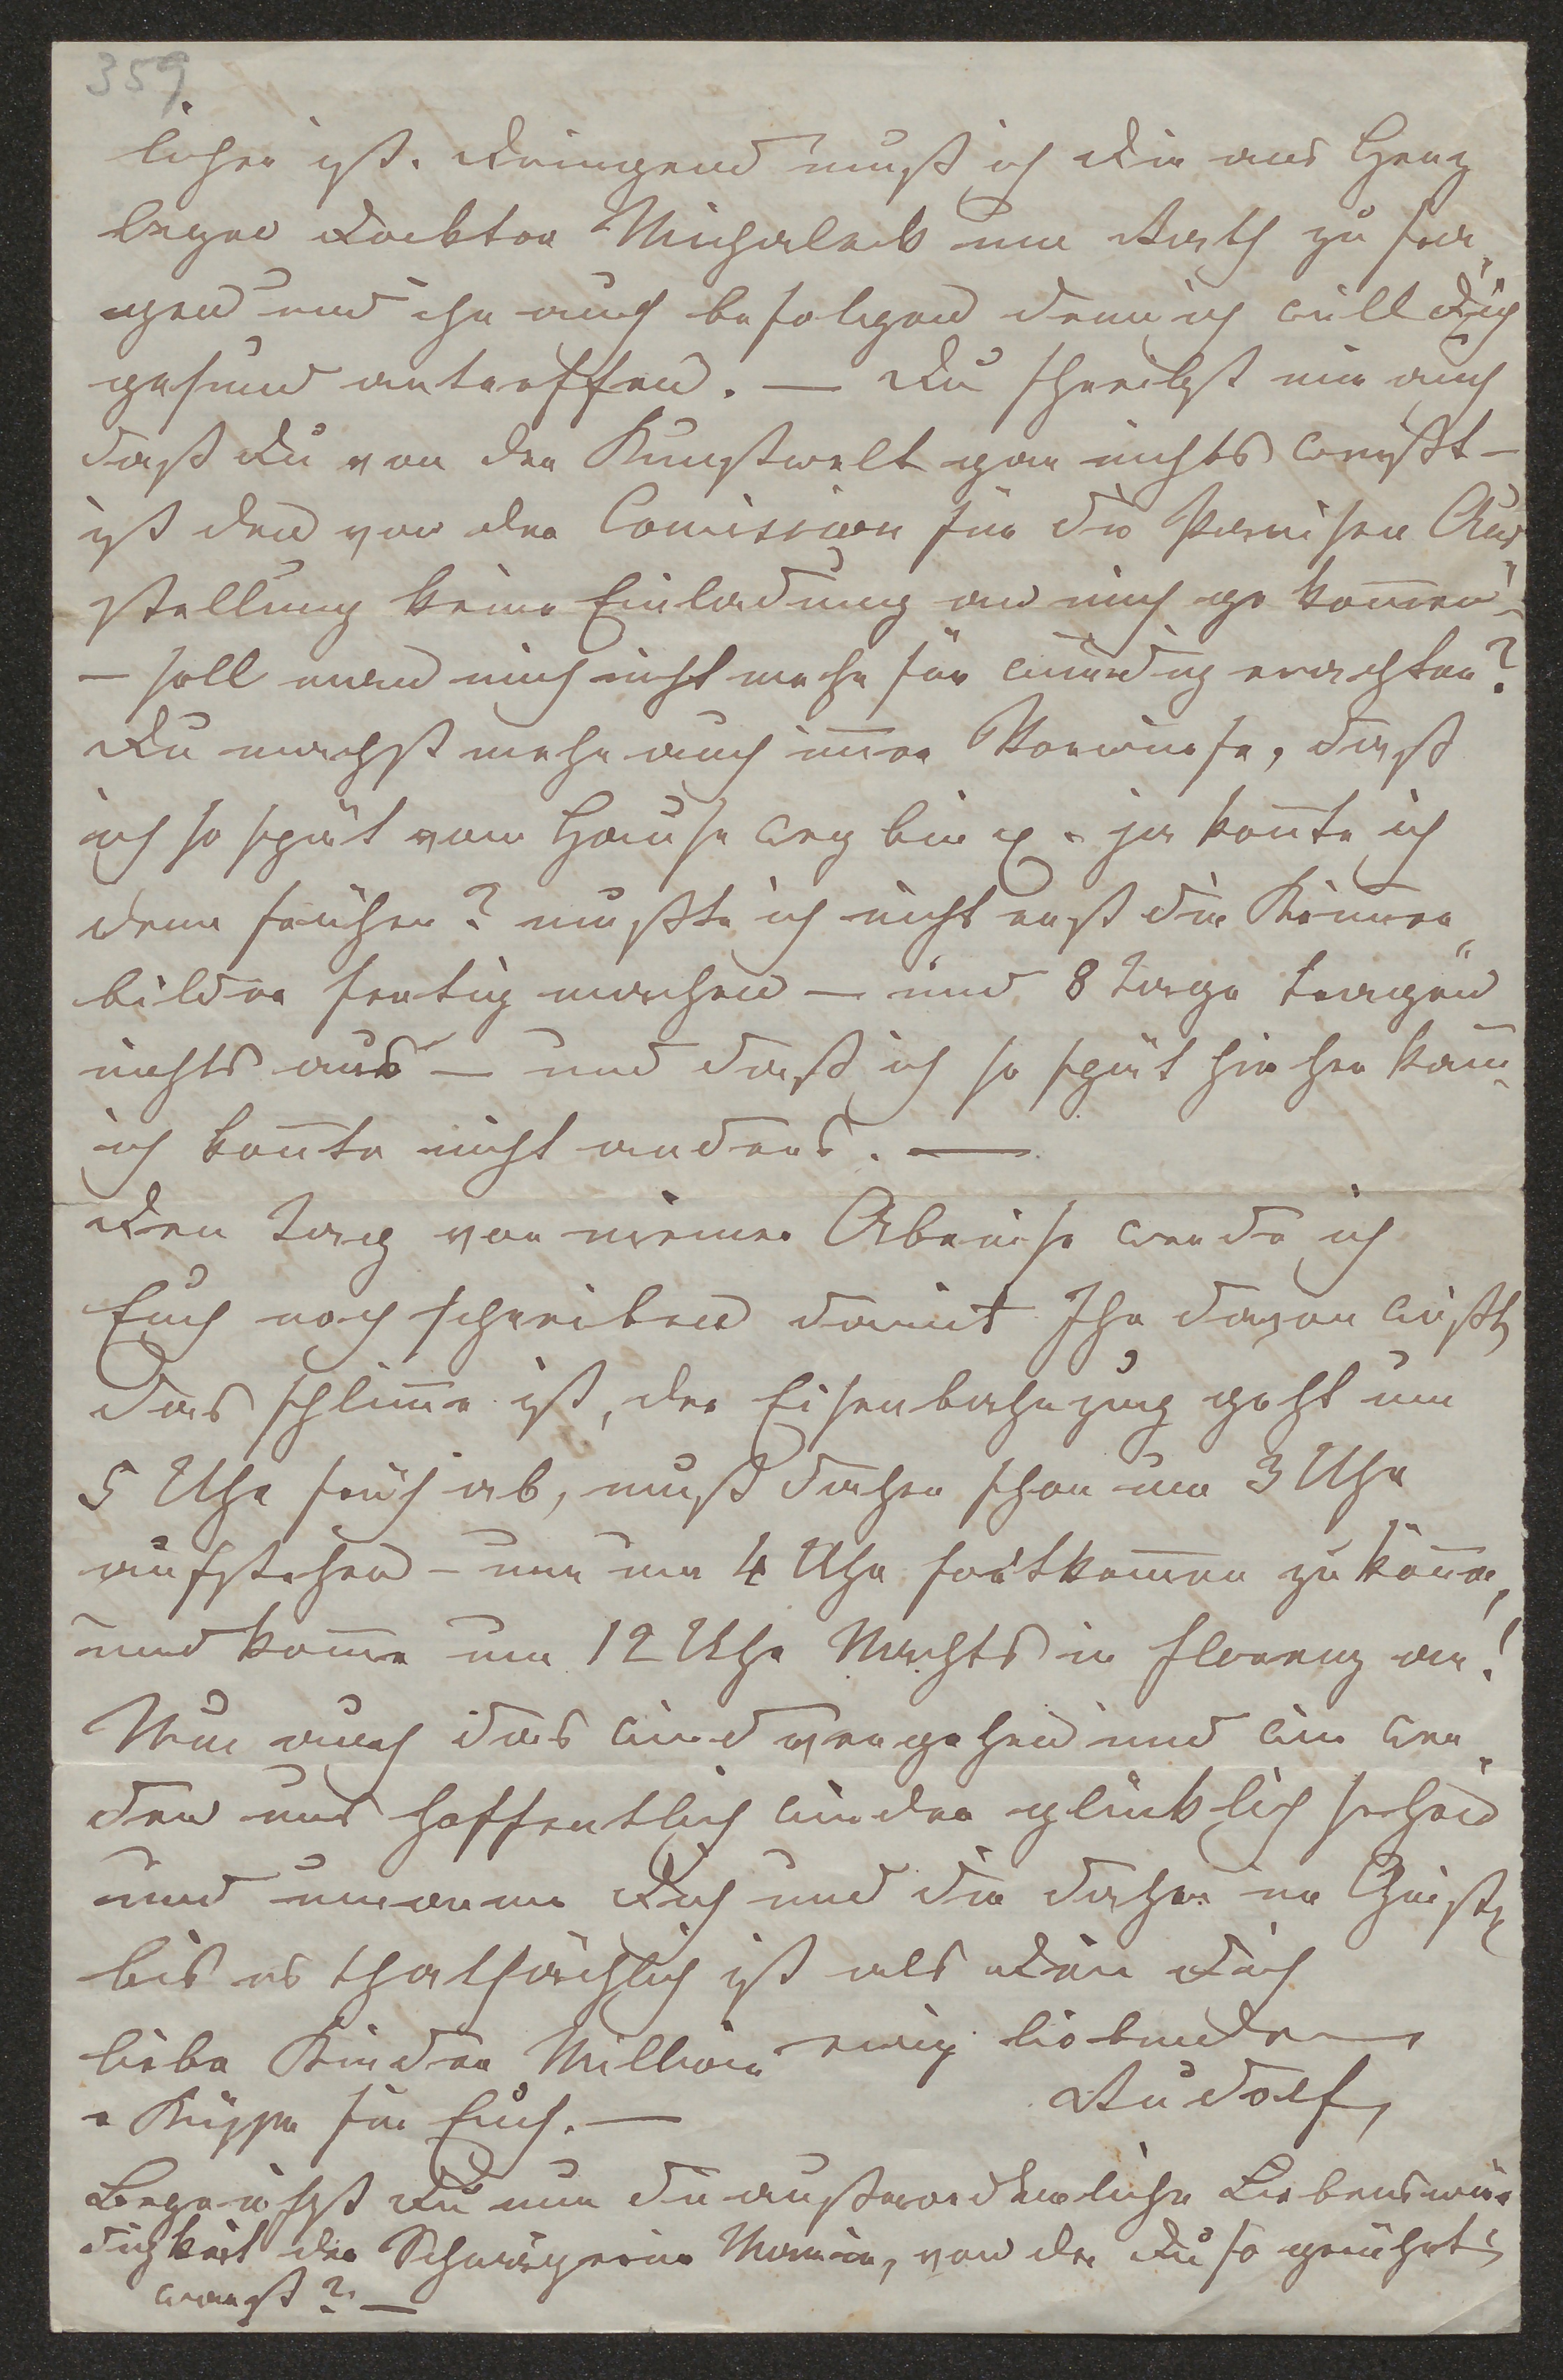 359
licher ist. Dringend muß ich Dir ans Herz
legen Docktor Michaleck um Rath zu fra„
gen und ihn auch befolgen denn ich will Dich
gesund antreffen. — Du schreibst mir auch
daß Du von der Kunstwelt gar nichts weißt —
ist den von der Comission für die Pariser Aus„
stellung keine Einladung an mich gekom̅en —
— soll man mich nicht mehr für würdig erachten?
Du machst mehr auch im̅er Vorwürfe, daß
ich so spät vom Hause weg bin – ja kon̅te ich
denn früher? mußte ich nicht erst die Kinder„
bilder fertig machen — und 8 Tage tragen
nichts aus — und daß ich so spät hieher kam
ich kon̅te nicht anders. —
Den Tag vor meiner Abreise werde ich
Euch noch schreiben damit Ihr davon wißt,
das schlim̅e ist, der Eisenbahnzug geht um
5 Uhr früh ab, muß daher schon um 3 Uhr
aufstehen – um um 4 Uhr fortkom̅en zu kön̅en,
und kom̅e um 12 Uhr Nachts in Florenz an!
Nun auch das wird vergehen und wir wer„
den uns hoffentlich wieder glücklich sehen
und umarme Dich und die daher im Geiste
bis es thatsächlich ist als Dein Dich
liebe Kinder Million ewig liebender
Küsse für Euch. — Rudolf,
Begreifst Du nun die außerordentliche Liebenswür
digkeit der Schwägerin Marie, von der Du so gerührt
warst? —